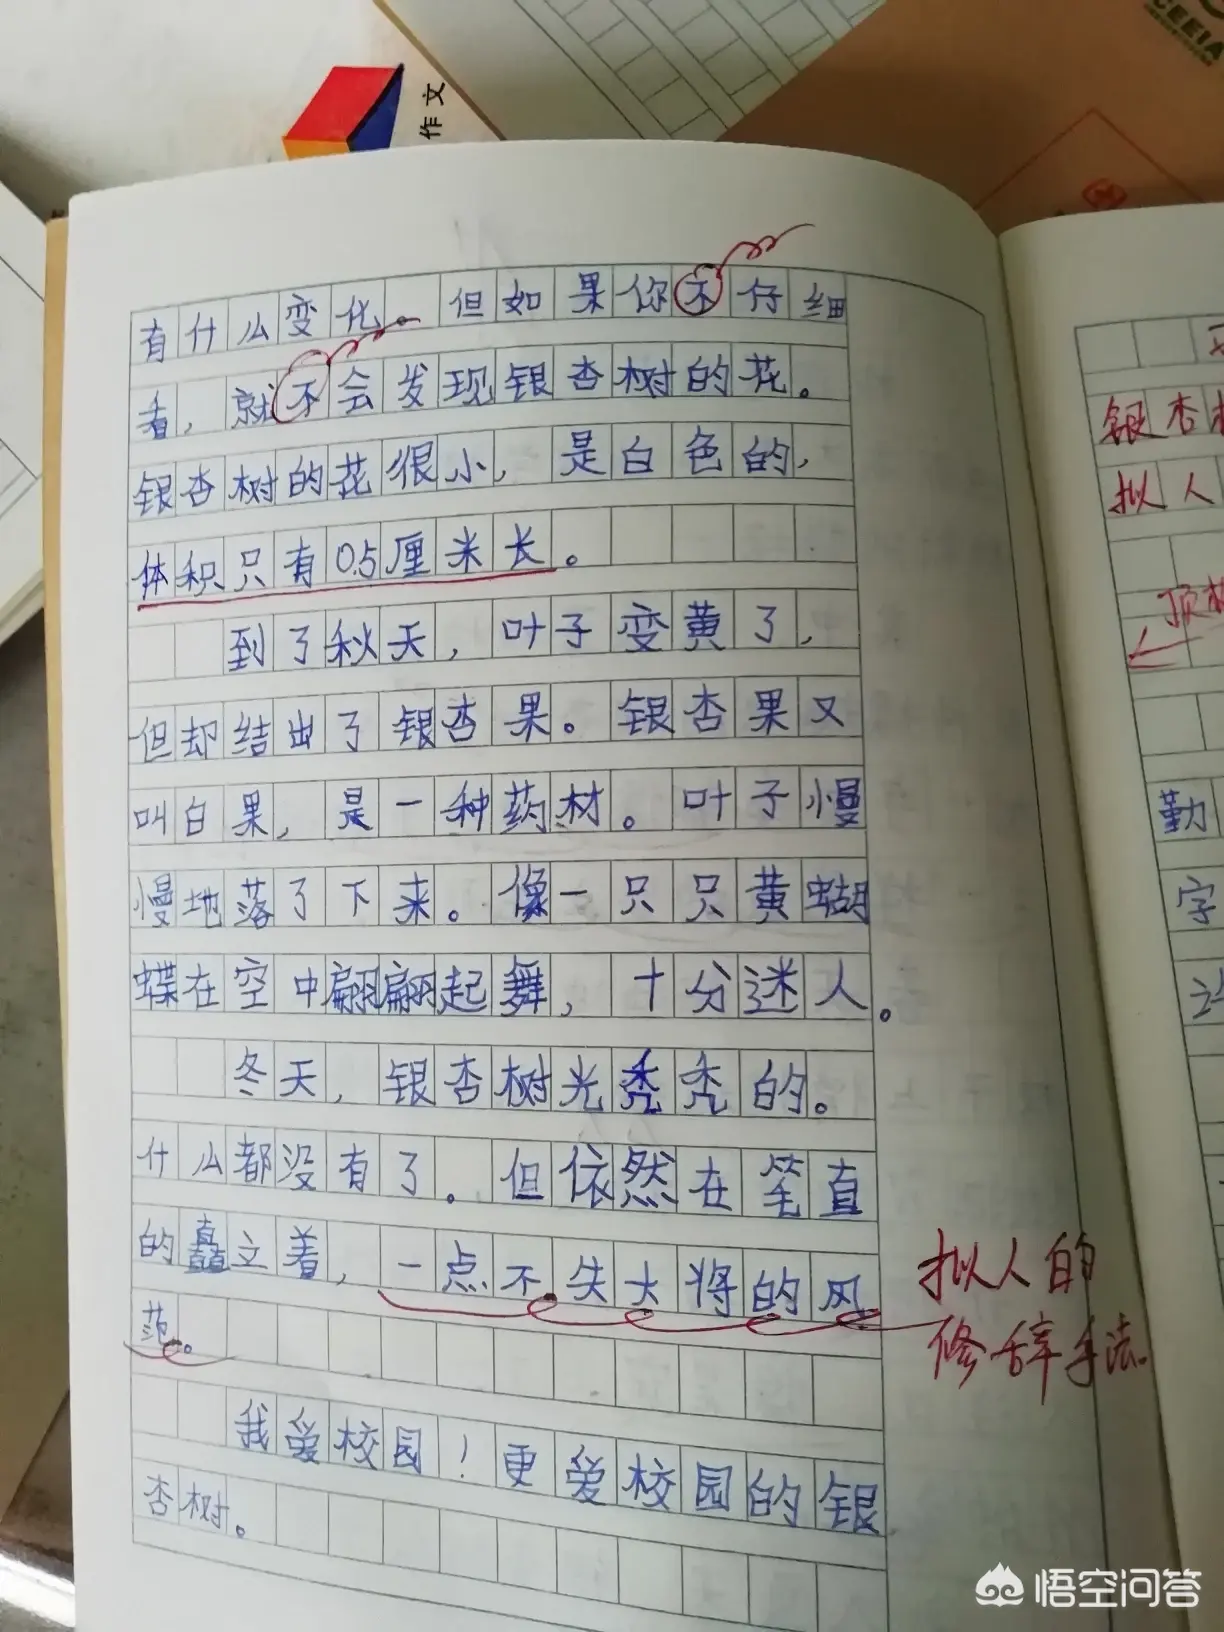 CEEIA
作文
有什么变化。但如果你不仔细
看，就不会发现银杏树的花。
银杏树的花很小，是白色的，
体积只有0.5厘米长。
到了秋天，叶子变黄了，
但却结出了银杏果。银杏果又
叫白果，是一种药材。叶子慢
慢地落了下来。像一只只黄蝴
蝶在空中翩翩起舞，十分迷人。
冬天，银杏树光秃秃的。
什么都没有了。但依然在笔直
的矗立着，一点不失大将的风
范。
拟人的
修辞手法。
我爱校园！更爱校园的银
杏树。
银杏
拟人
勤
字
悟空问答